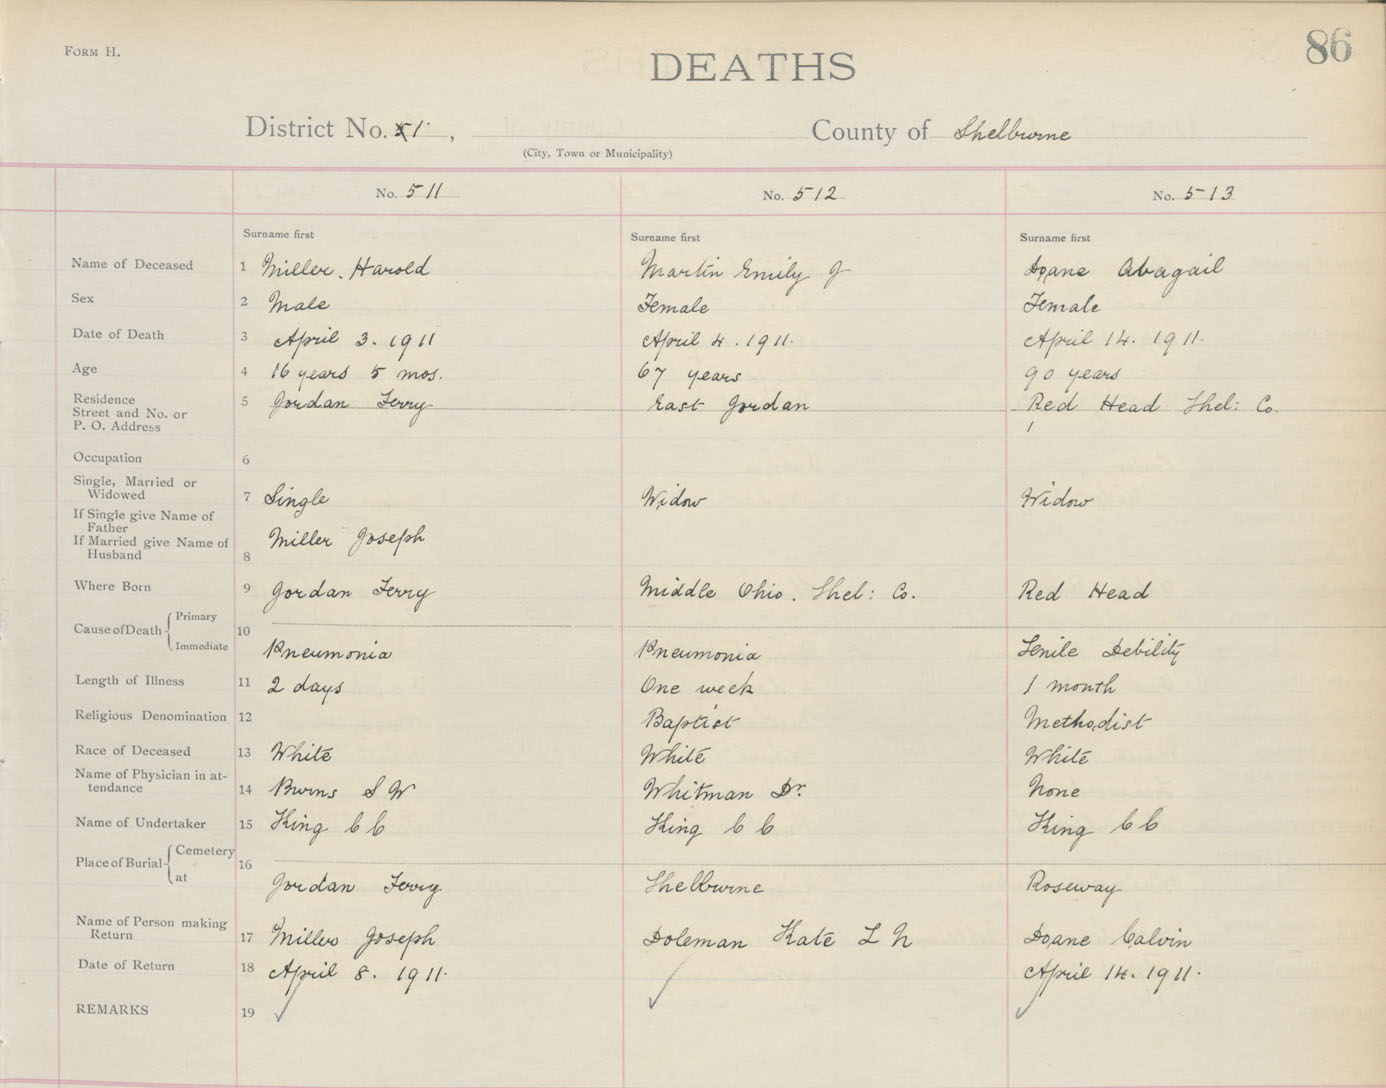 FORM H.
86
DEATHS
District No. 51 , County of Shelburne
(City, Town or Municipality)
No. 511 No. 512 No. 513
Surname first Surname first Surname first
Name of Deceased 1 Miller. Harold Martin Emily J Doane Abagail
Sex 2 Male Female Female
Date of Death 3 April 3. 1911 April 4. 1911. April 14. 1911.
Age 4 16 years 5 mos. 67 years 90 years
Residence 5 Jordan Ferry East Jordan Red Head Shel: Co.
Street and No. or
P. O. Address
Occupation 6
Single, Married or
Widowed 7 Single Widow Widow
If Single give Name of
Father
If Married give Name of Miller Joseph
Husband 8
Where Born 9 Jordan Ferry Middle Ohio. Shel: Co. Red Head
Cause of Death Primary 10
Immediate Pneumonia Pneumonia Senile Debility
Length of Illness 11 2 days One week 1 month
Religious Denomination 12 Baptist Methodist
Race of Deceased 13 White White White
Name of Physician in at-
tendance 14 Burns S W Whitman Dr. None
Name of Undertaker 15 King C C King C C King C C
Place of Burial Cemetery 16
at Jordan Ferry Shelburne Roseway
Name of Person making
Return 17 Joseph Doleman Kate L N Doane Calvin
Date of Return 18 April 8. 1911. April 14. 1911.
REMARKS 19